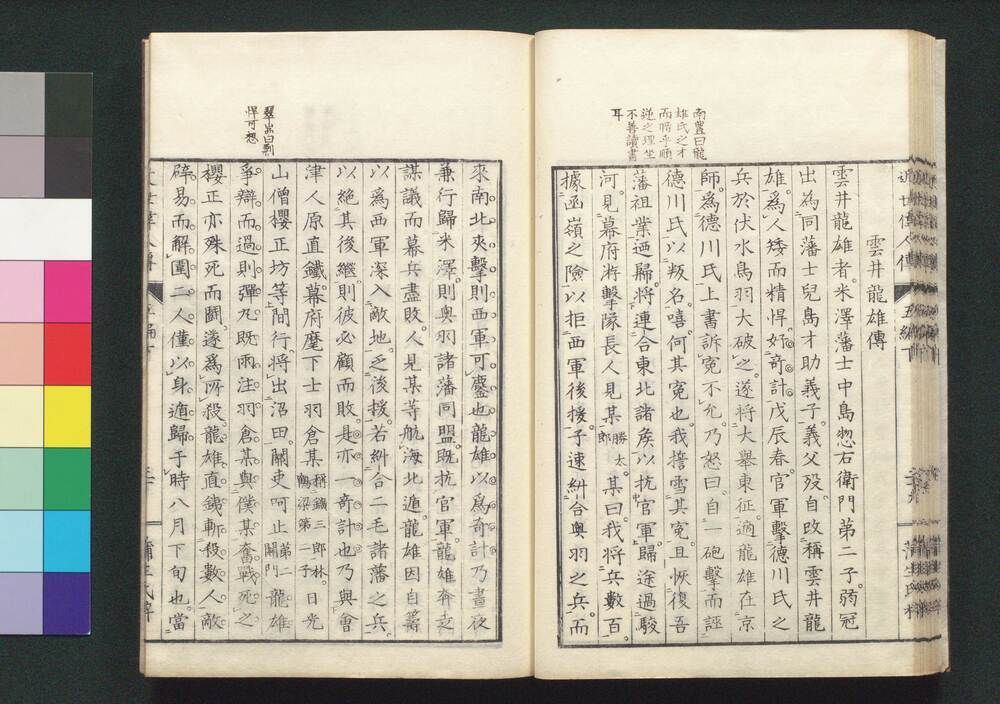 雲井龍雄傳
雲井龍雄者。米澤藩士中島惣右衛門第二子。弱冠
出為同藩士兒島才助義子。義父歿。自改稱雲井龍
雄。為人矮而精悍。好奇計。戊辰春官軍擊德川氏之
兵於伏水鳥羽大破之。遂將大舉東征。適龍雄在京
師。為德川氏上書訴冤不允。乃怒曰。自一砲擊而誣
德川氏以叛名。嘻。何其冤也。我誓雪其冤。且恢復吾
藩祖業。迺歸。將連合東北諸矦以抗官軍。歸途過駿
河。見幕府將擊隊長人見某。勝太郎某曰。我將兵數百。
據函嶺之險以拒西軍後援。子速糾合奥羽之兵。而
南豐曰龍
雄氏之才
而暗乎順
逆之理坐
不善讀書
耳
來南北夾擊。則西軍可鏖也。龍雄以爲奇計。乃晝夜
兼行歸米澤。則奥羽諸藩同盟。既抗官軍。龍雄奔走
謀議。而幕兵盡敗。人見某等航海北遁。龍雄因自籌
以為西軍深入敵地。乏後援。若糾合二毛諸藩之兵。
以絕其後繼。則彼必顧而敗。是亦一奇計也。乃與會
津人原直鐵。幕府麾下士羽倉某稱鐵三郎。林鶴梁第一子。日光
山僧櫻正坊等間行將出沼田。關吏呵止第二關門龍雄
爭辯而過。則彈丸既雨注。羽倉某與僕某奮戰死之
櫻正亦殊死而鬬。遂爲所殺。龍雄直鐵斬殺數人。敵
辟易而解圍。二人僅以身遁歸。于時八月下旬也。當
悍可想